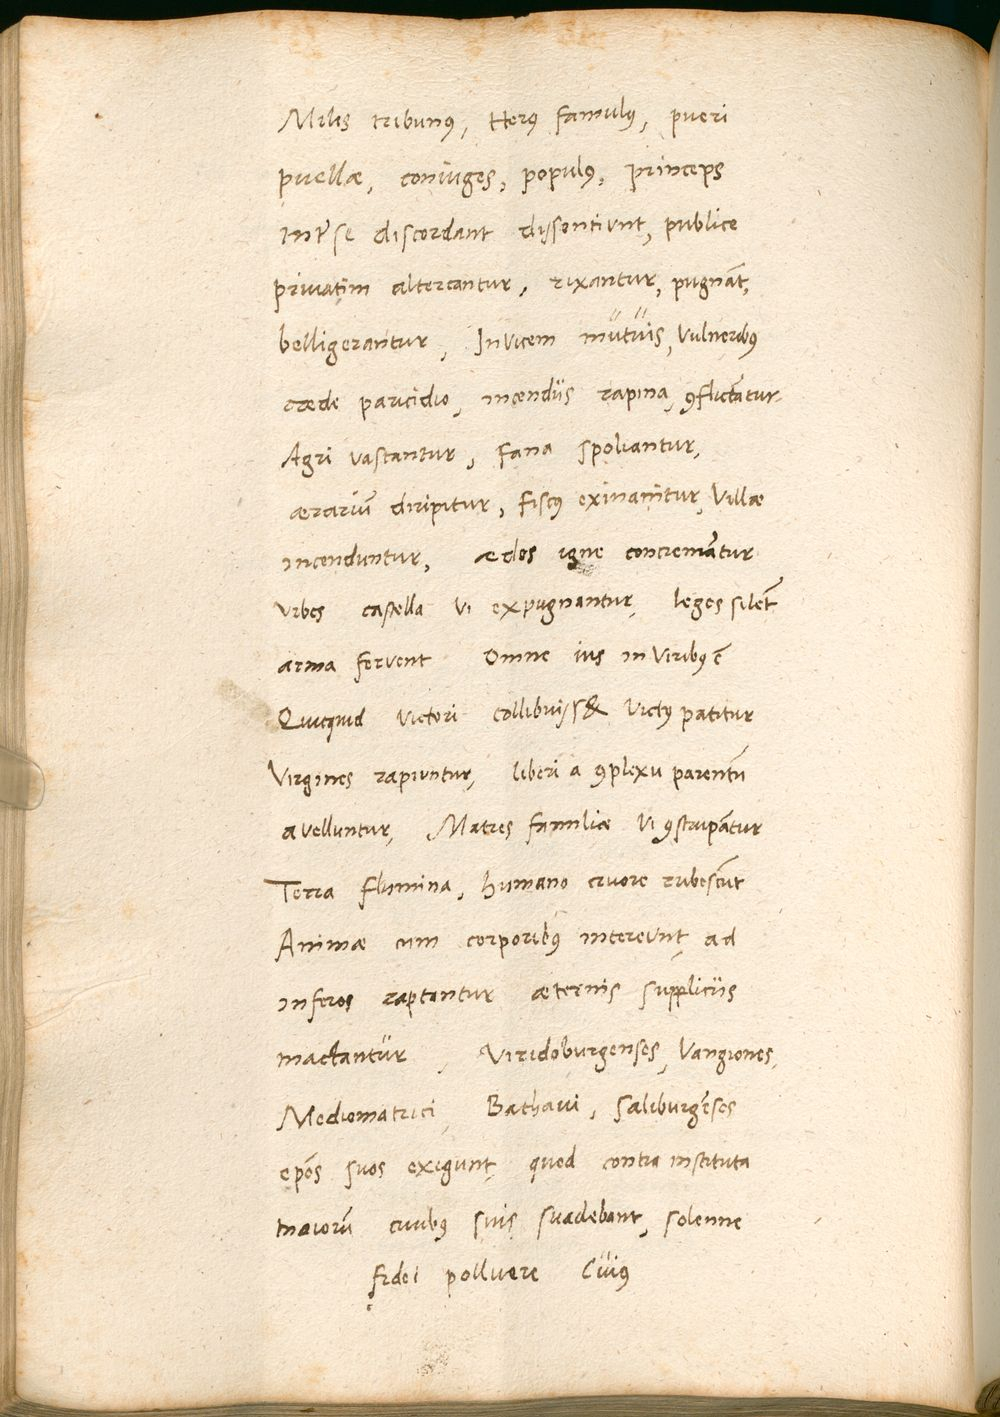 Miles tribunꝰ, Herꝰ famulꝰ, pueri
puellæ, coniuges, populꝰ, princeps
Int̉se discordant dissentiunt, publice
priuatim altercantur, rixantur, pugnāt,
belligerantur, Inuicem mutuis, vulneribꝰ
cæde paricidio, incendiis rapina, ꝯflictātur.
Agri vastantur, Fana spoliantur,
ærariū diripitur, Fiscꝰ exinanitur, Villæ
incenduntur, ædes igne concremātur
Vrbes castella vi expugnantur, leges silēt
arma fervent Omne ius in viribꝰ ē
Quicquid victori collibuiss& victꝰ patitur
Virgines rapiuntur, liberi a ꝯplexu parentū
avelluntur, Matres familiæ vi ꝯstupātur
Terra flumina, humano cruore rubescūt
Animæ cum corporibꝰ intereunt, ad
inferos raptantur æternis suppliciis
mactantur, Viridoburgenses, Vangiones,
Mediomatrici, Bathaui, Saliburgēses
epōs suos exigunt, quod contra instituta
maiorū ciuibꝰ suis suadebant, solenne
fidei polluere Cuiꝰ